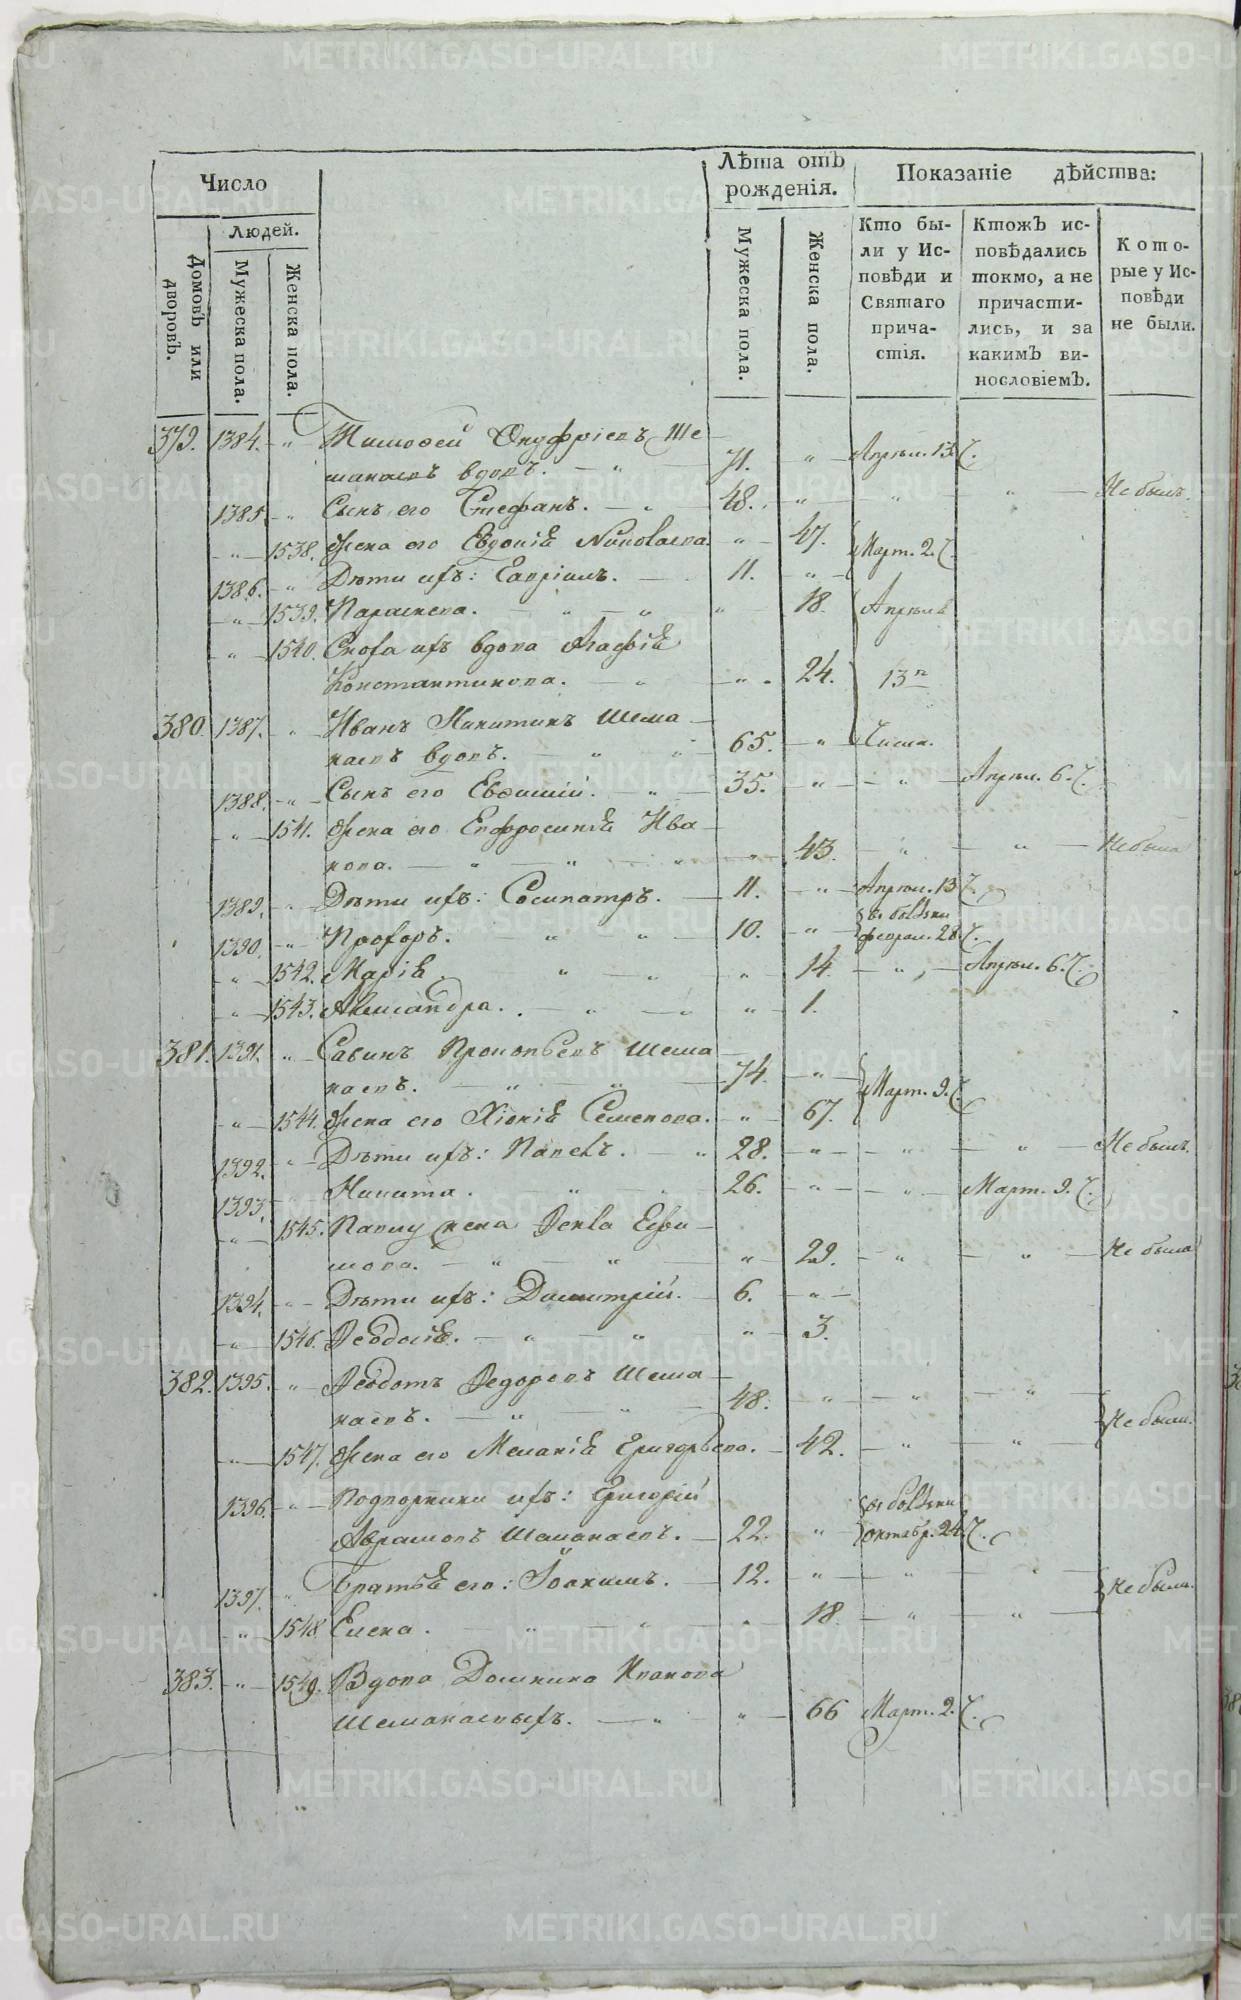 Число
Лѣта отъ рожденія.
Показаніе дѣйства:
Домовъ или дворовъ.
Людей.
Мужеска пола.
Женска пола.
Мужеска пола.
Женска пола.
Кто были у Исповѣди и Святаго причастія.
Ктожъ исповѣдались токмо, а не причастились, и за какимъ винословіемъ.
Которые у Исповѣди не были.
379. 1384. " Тимоѳей Онуфріевъ Ше
манаевъ вдовъ. 71. " Апрѣл. 13.
1385. " Сынъ его Стефанъ. 48. " " " Не былъ.
" 1538. Жена его Евдокія Николаева. " 47. Март. 2.
1386. " Дѣти ихъ: Гавріилъ. 11. "
" 1539. Параскева. " 18. Апрѣля
" 1540. Сноха ихъ вдова Агафія
Константинова. " 24. 13го
380. 1387. " Иванъ Никитинъ Шема
наевъ вдовъ. 65. " Числа.
1388. " Сынъ его Евѳимій. 35. " " Апрѣл. 6.
" 1541. Жена его Евфросинія Ива
нова. " 43. " " Не была
1389. " Дѣти ихъ: Сосипатръ. 11. " Апрѣл. 13.
1390. " Прохоръ. 10. " въ болѣзни феврал. 28.
" 1542. Марія. " 14. " Апрѣл. 6.
" 1543. Александра. " 1.
381. 1391. " Савинъ Прокопьевъ Шема
наевъ. 74. " Март. 9.
" 1544. Жена его Хіонія Семенова. " 67.
1392. " Дѣти ихъ: Павелъ. 28. " " " Не былъ.
1393. " Никита. 26. " " Март. 9.
" 1545. Павлу жена Ѳекла Ефи
мова. " 29. " " Не была
1394. " Дѣти ихъ: Димитрій. 6. "
" 1546. Ѳеодосія. " 3.
382. 1395. " Ѳеодотъ Ѳедоровъ Шема
наевъ. 48. " " " Не были.
" 1547. Жена его Меланія Григорьева. 42. " "
1396. " Подворники ихъ: Григорій
Аврамовъ Шеманаевъ. 22. " въ болѣзни октябр. 24.
1397. " Братья его: Іоакимъ. 12. " " "
" 1548. Елена. " 18. " " Не были.
383. " 1549. Вдова Домнина Иванова
Шеманаевыхъ. " 66 Март. 2.
METRIKI.GASO-URAL.RU